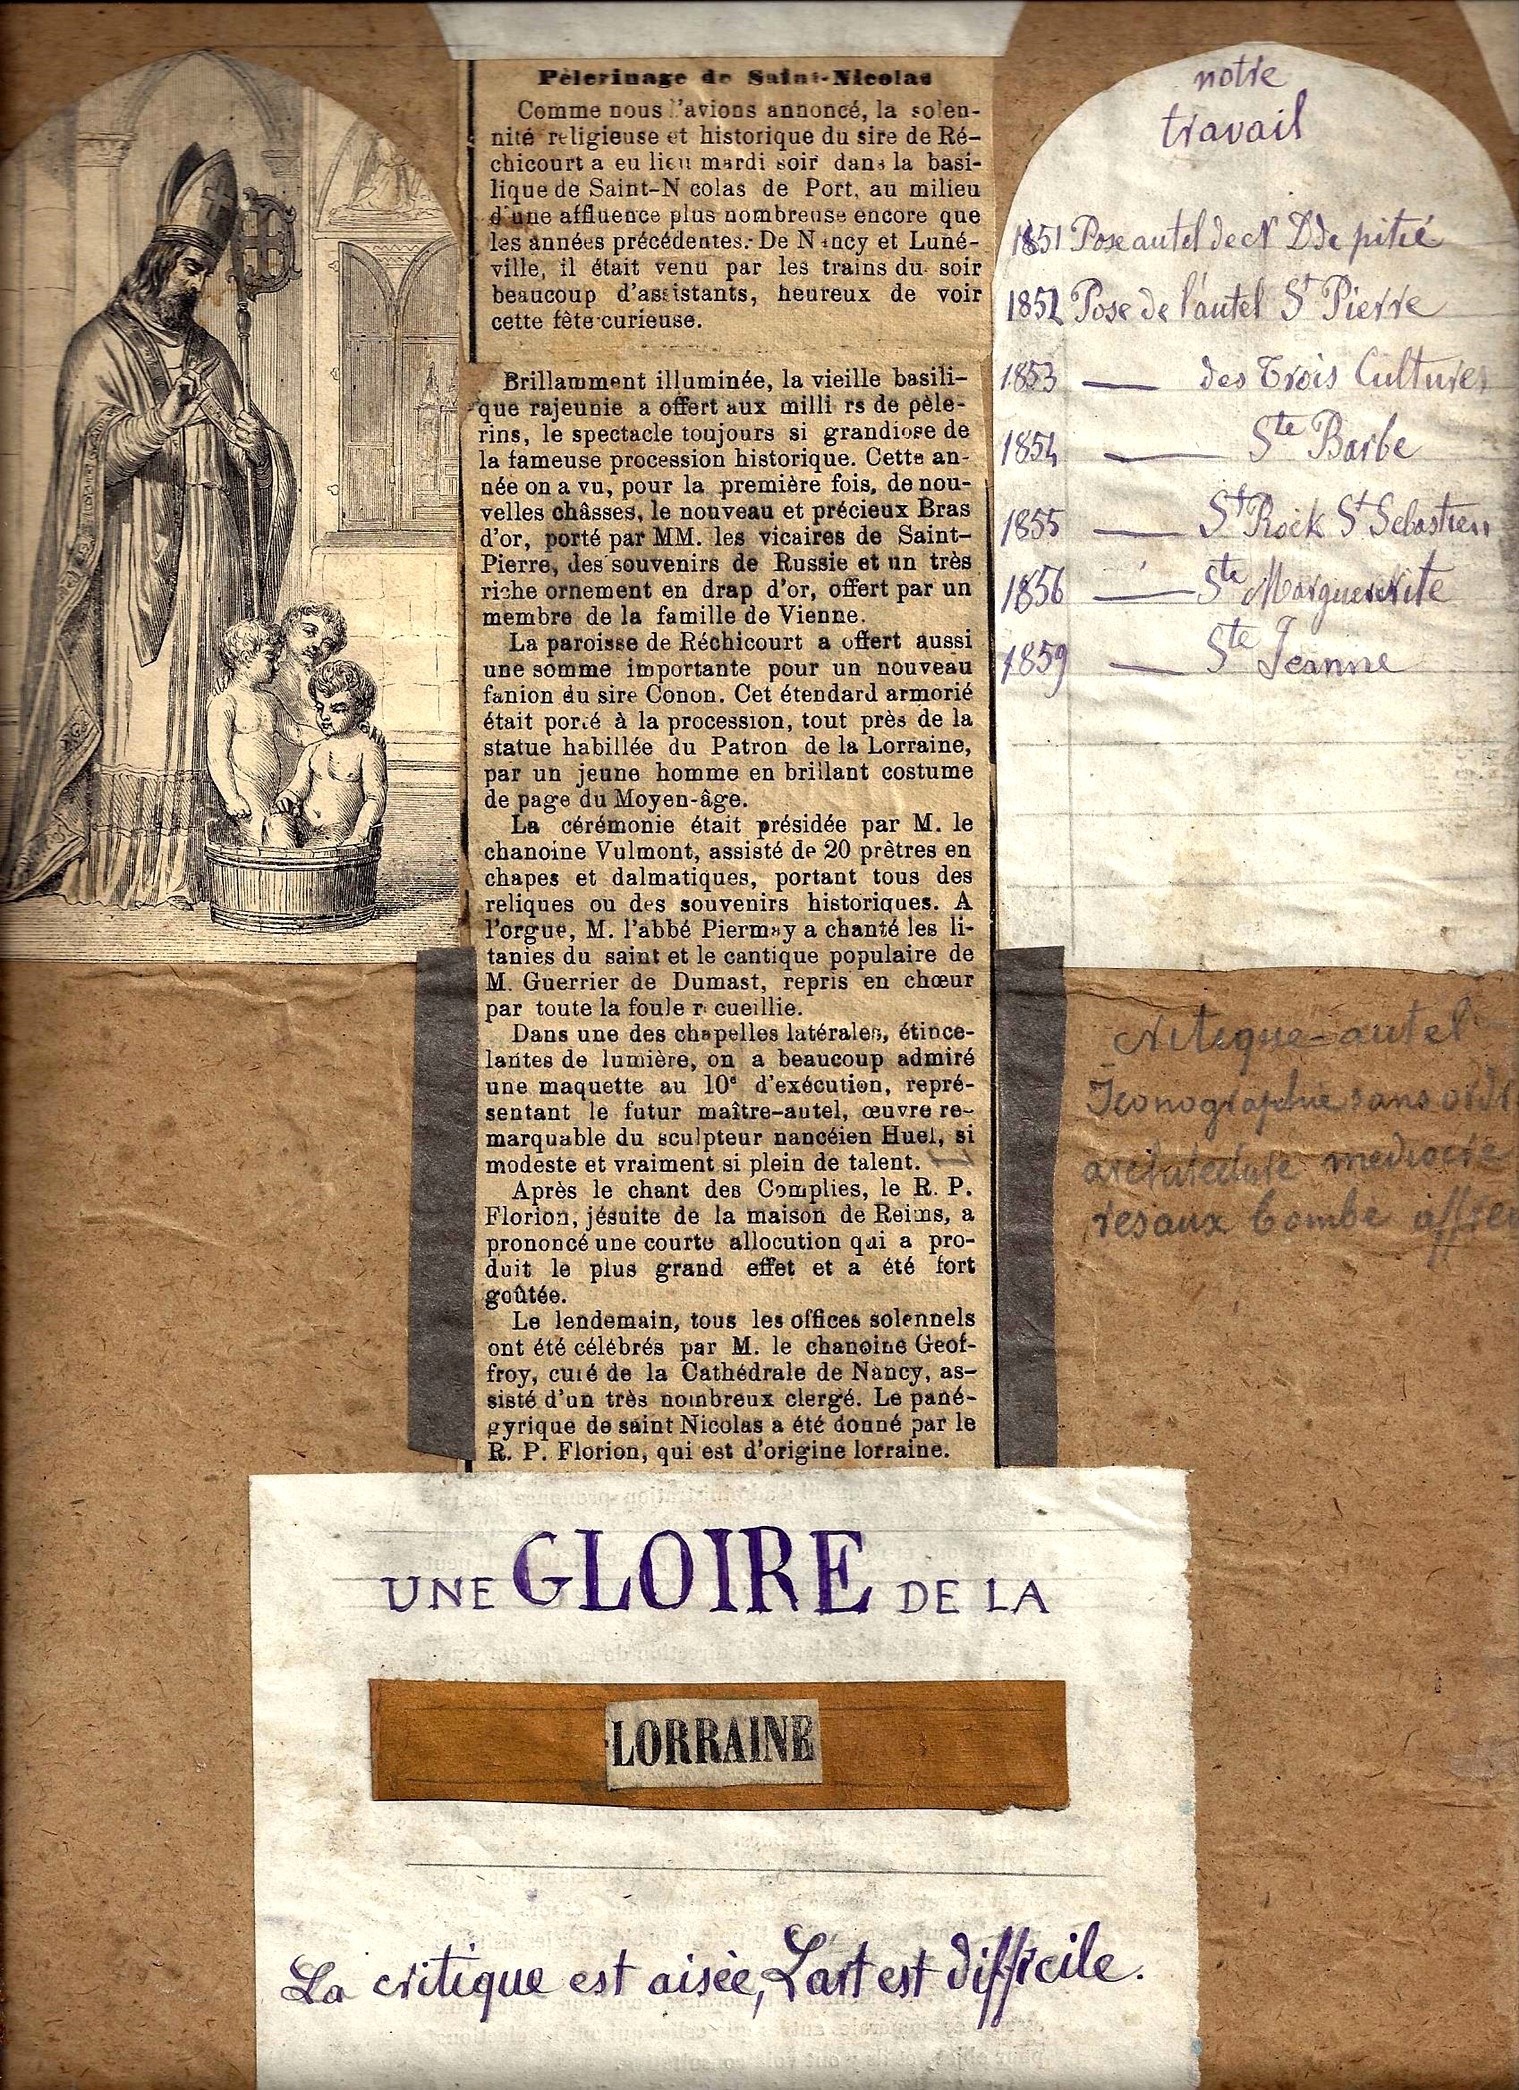 Pèlerinage de Saint-Nicolas
Comme nous l'avions annoncé, la solen-
nité religieuse et historique du sire de Ré-
chicourt a eu lieu mardi soir dans la basi-
lique de Saint-N colas de Port, au milieu
d'une affluence plus nombreuse encore que
les années précédentes. De Nancy et Luné-
ville, il était venu par les trains du soir
beaucoup d'assistants, heureux de voir
cette fête curieuse.
Brillamment illuminée, la vieille basili-
que rajeunie a offert aux milli rs de pèle-
rins, le spectacle toujours si grandiose de
la fameuse procession historique. Cette an-
née on a vu, pour la première fois, de nou-
velles châsses, le nouveau et précieux Bras
d'or, porté par MM. les vicaires de Saint-
Pierre, des souvenirs de Russie et un très
riche ornement en drap d'or, offert par un
membre de la famille de Vienne.
La paroisse de Réchicourt a offert aussi
une somme importante pour un nouveau
fanion du sire Conon. Cet étendard armorié
était porté à la procession, tout près de la
statue habillée du Patron de la Lorraine,
par un jeune homme en brillant costume
de page du Moyen-âge.
La cérémonie était présidée par M. le
chanoine Vulmont, assisté de 20 prètres en
chapes et dalmatiques, portant tous des
reliques ou des souvenirs historiques. A
l'orgue, M. l'abbé Piermay a chanté les li-
tanies du saint et le cantique populaire de
M. Guerrier de Dumast, repris en chœur
par toute la foule r cueillie.
Dans une des chapelles latérales, étince-
lantes de lumière, on a beaucoup admiré
une maquette au 10e d'exécution, repré-
sentant le futur maître-autel, œuvre re-
marquable du sculpteur nancéien Huel, si
modeste et vraiment si plein de talent.
Après le chant des Complies, le R. P.
Florion, jésuite de la maison de Reims, a
prononcé une courte allocution qui a pro-
duit le plus grand effet et a été fort
goûtée.
Le lendemain, tous les offices solennels
ont été célébrés par M. le chanoine Geof-
froy, curé de la Cathédrale de Nancy, as-
sisté d'un très nombreux clergé. Le pané-
gyrique de saint Nicolas a été donné par le
R. P. Florion, qui est d'origine lorraine.
notre
travail
1851 Pose autel de N D de pitié
1852 Pose de l'autel St Pierre
1853 — des Trois Cultures
1854 — Ste Barbe
1855 — St Rock St Sebastien
1856 — Ste Marguererite
1859 — Ste Jeanne
critique autel
Iconographie sans ordr
architecture mediocre
resaux bombe affreu
UNE GLOIRE DE LA
LORRAINE
La critique est aisèe, L'art est difficile.